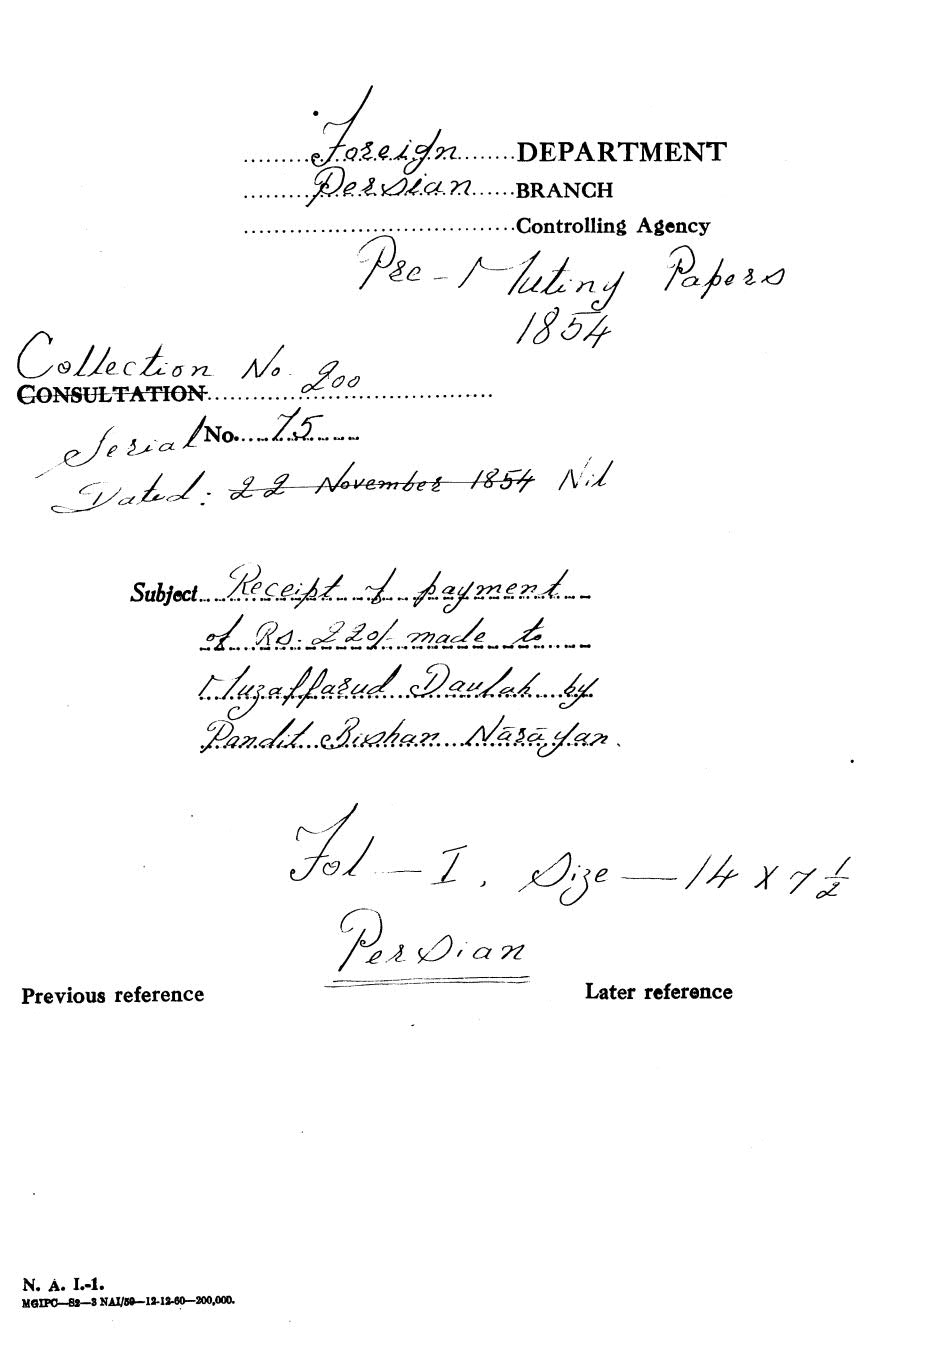 Foreign DEPARTMENT
Persian BRANCH
Controlling Agency
Pre-Mutiny Papers
1854
Collection No. 200
CONSULTATION
Serial No. 75
Dated: 22 November 1854 Nil
Subject Receipt of payment
of Rs. 220/- made to
Muzaffarud Daulah by
Pandit Bishan Nārāyan.
Fol — I, Size — 14 X 7 1/2
Persian
Previous reference Later reference
N. A. I.-1.
MGIPC—S2—3 NAI/59—12-12-60—200,000.